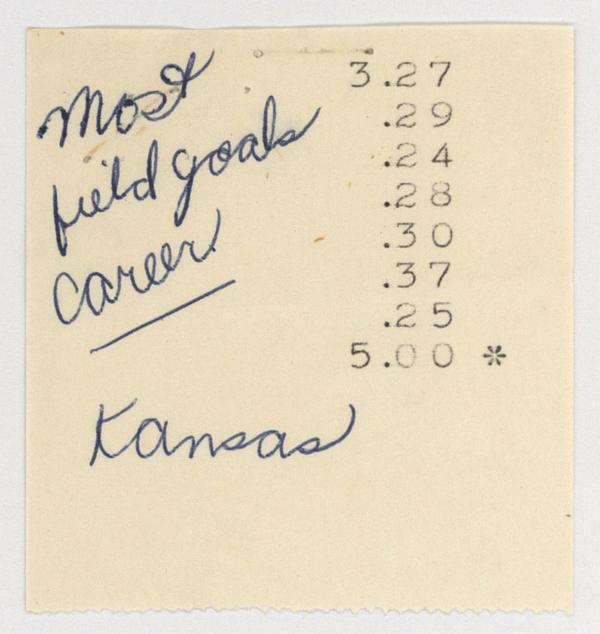 Most
field goals
career
Kansas
3.27
.29
.24
.28
.30
.37
.25
5.00 *